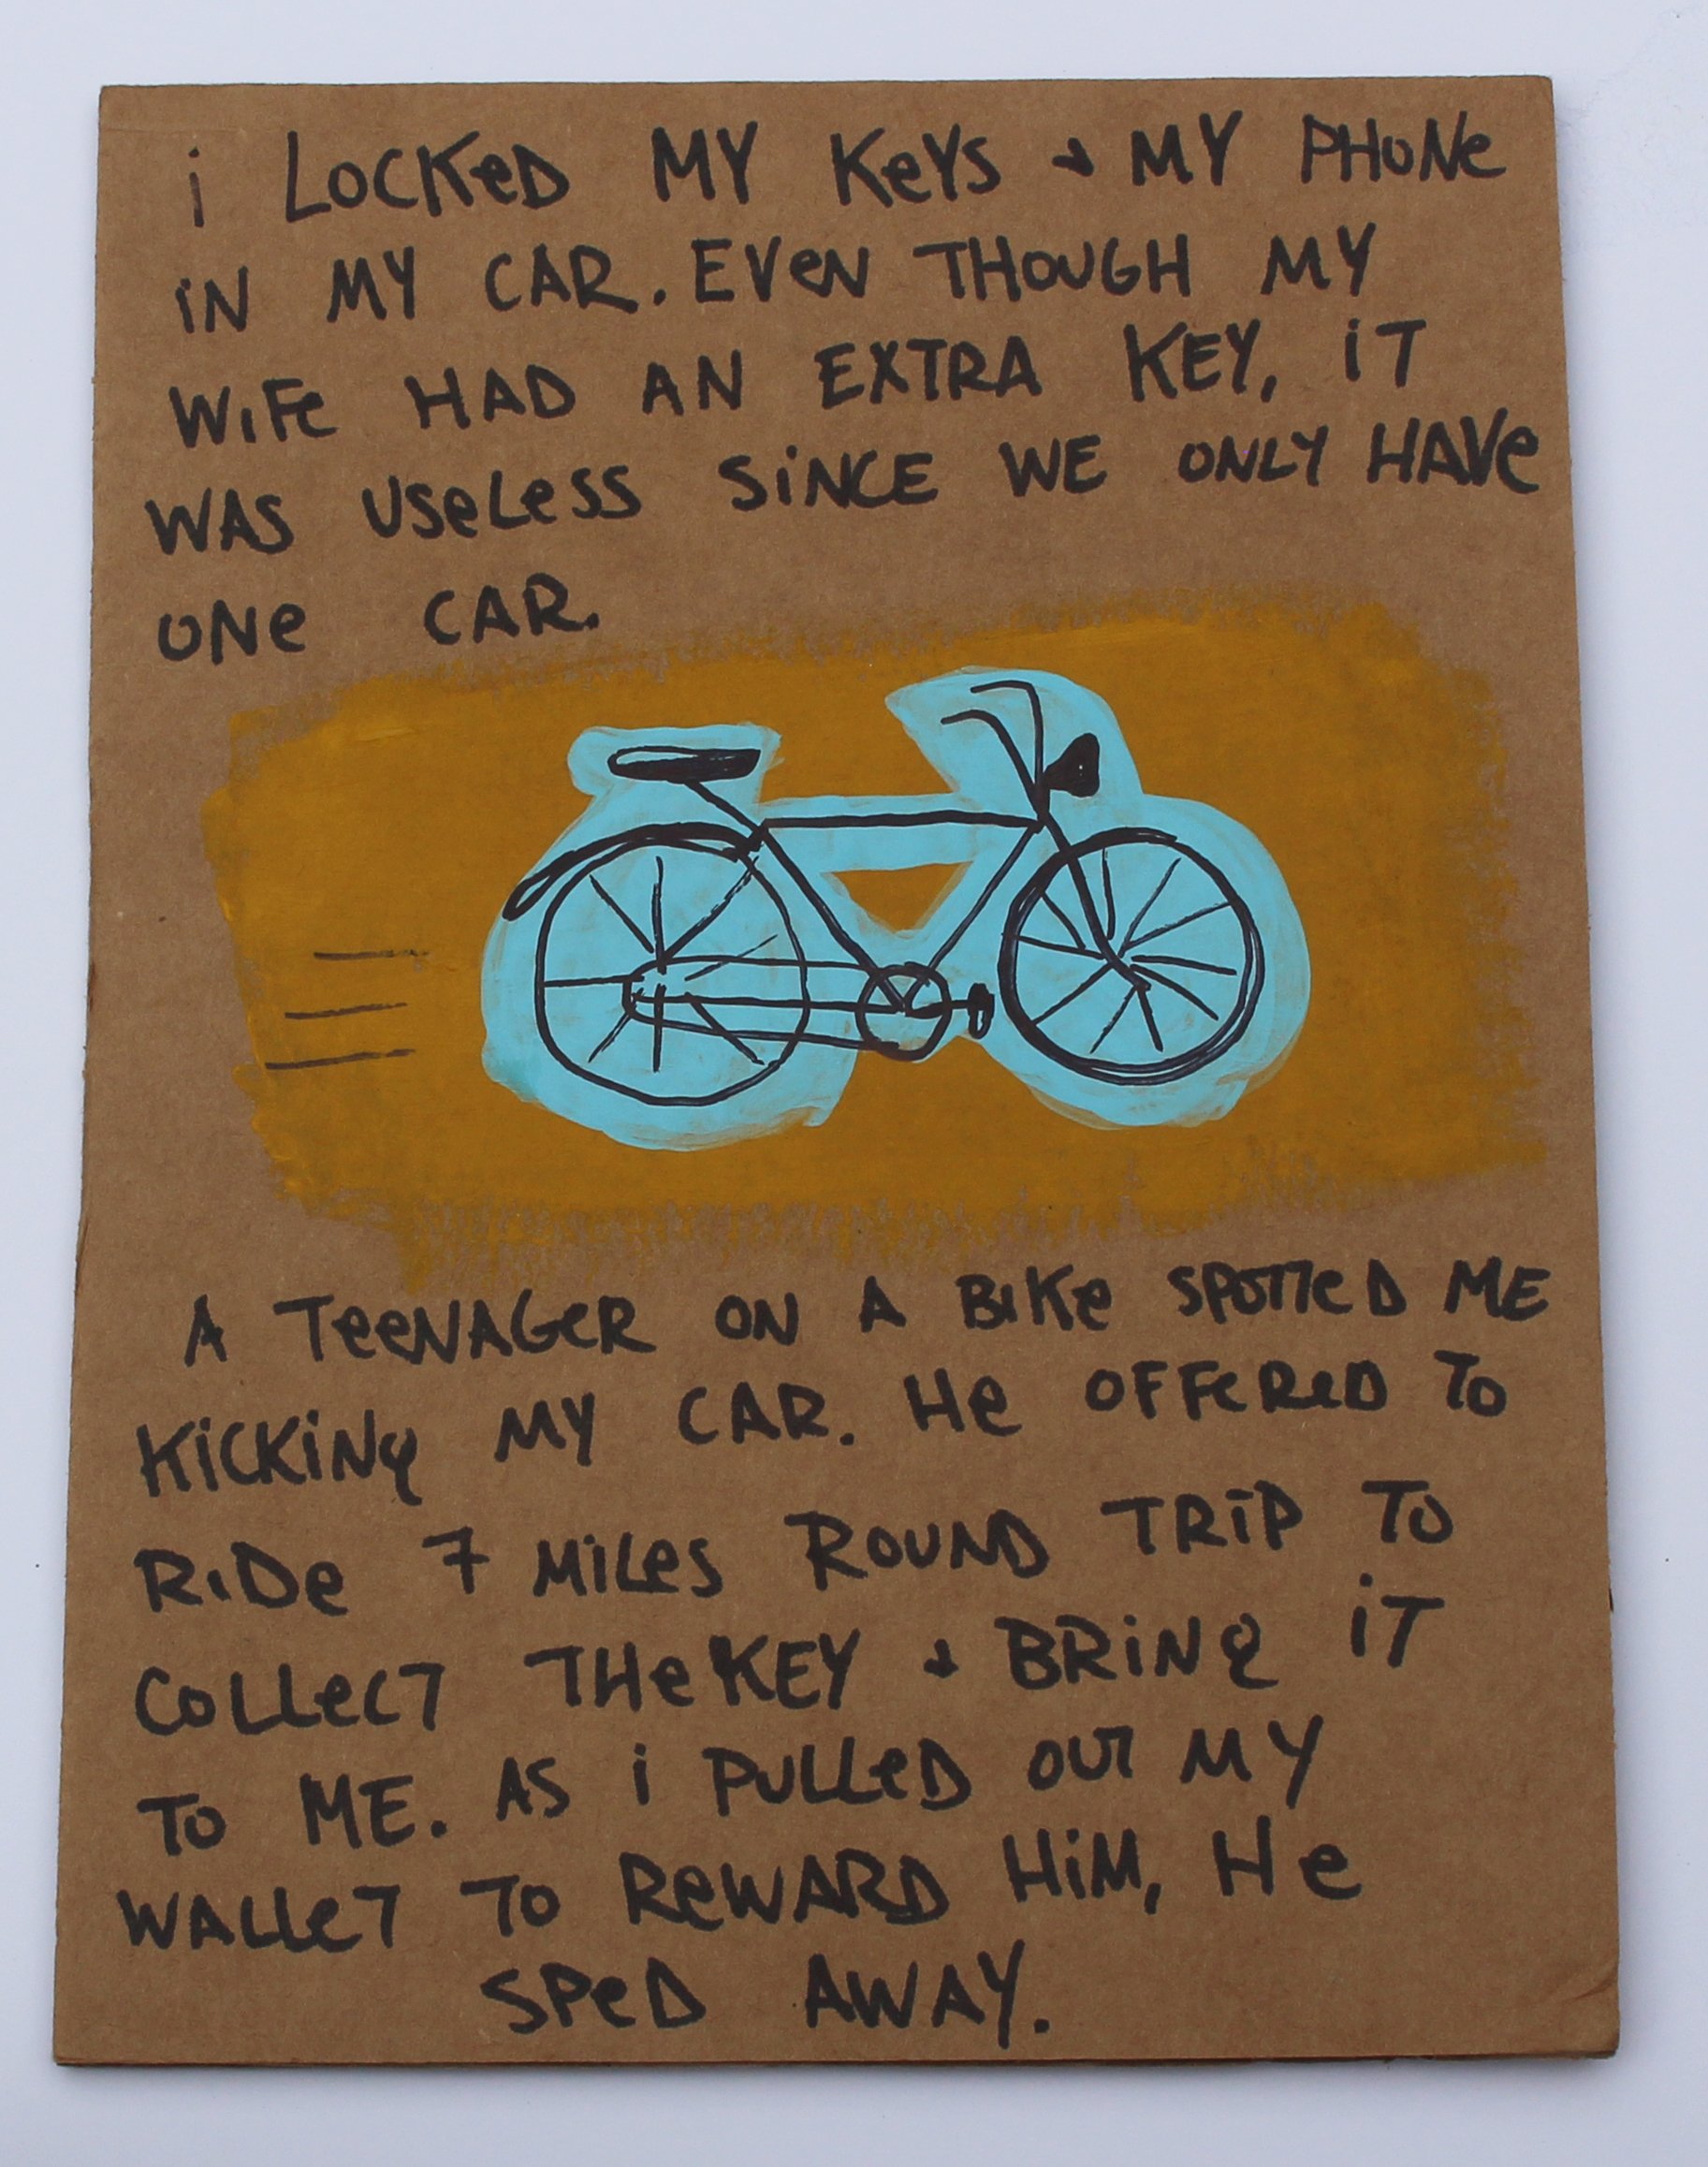 i LOCKeD MY KeYS + MY PHONe
iN MY CAR. EVeN THOUGH MY
WiFe HAD AN EXTRA KEY, iT
WAS USeLeSS SiNCE WE ONLY HAVe
ONe CAR.
A TeeNAGeR ON A BiKe SPOTTeD ME
KiCKiNg MY CAR. He OFFeReD TO
RiDe 7 MiLes ROUND TRiP TO
COLLeCT THe KEY + BRiNg iT
TO ME. AS i PULLeD OUT MY
WALLeT TO ReWARD HiM, He
SPeD AWAY.